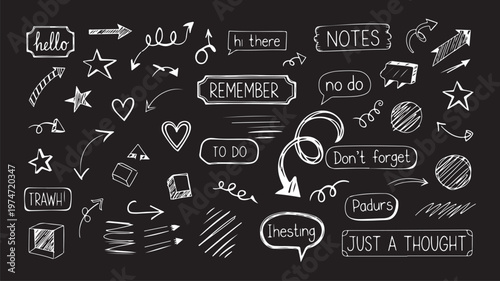 hello
hi there
NOTES
REMEMBER
no do
TO DO
Don't forget
TRAWH!
Padurs
Ihesting
JUST A THOUGHT
Adobe Stock | #1974720347